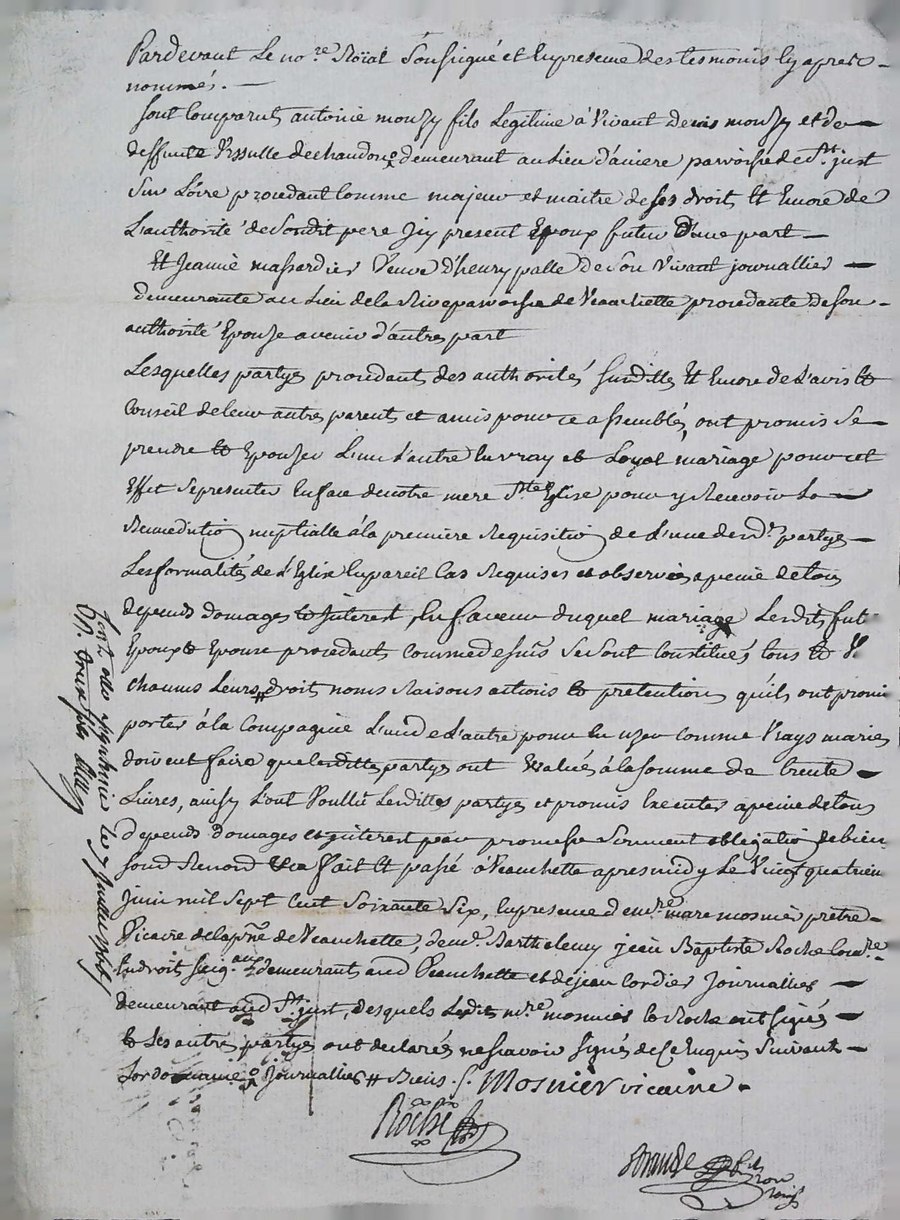 Pardevant Le no.re Roïal Soussigné et En presence des tesmoins Cy apres
nommés.
Sont Comparuts antoine mouzy fils Legitime à Vivant denis mouzy et de
deffunte Ursulle dechandon demeurant au Lieu d'aniere parroisse de St just
Sur Loire procedant Comme majeur et maitre de ses droits Et Encore de
L'authorité de Sondit pere Icy present Epoux futur D'une part
Et Jeanne massardier Veuve d'henry palle de Son Vivant journallier
demeurante au Lieu de la Rive parroisse de Veauchette procedante de son
authorité Epouse avenir d'autres part
Lesquelles partys procedant des authorités Susdittes Et Encore de L'avis Et
Conseil de leur autres parents et amis pour ce assemblés, ont promis Se
prendre Et Epouser L'un L'autre En vray et Loyal mariage pour cet
Effet Se presenter En face de notre mere Ste Eglise pour y Recevoir La
Benediction nuptialle à la premiere Requisition de L'une des partys
Les formalités de L'Eglise En pareil Cas Requises et observées a peine de tous
depends domages Et Interest, En faveur duquel mariage Lesdits fut.
Epoux Et Epouse procedants comme dessus Se Sont Constitués tous Et
chacuns Leurs droits noms Raisons actions Et pretentions qu'ils ont promis
porter à la Compagnie L'un de L'autre pour En user Comme Vrays mariés
doivent faire que Lesdittes partys ont Evalués à la somme de trente
Livres, ainsy L'ont Voullu Lesdittes partys et promis Executer a peine de tous
depends domages et jnterest par promesse Serment obligation de bien
fait Et passé à Veauchette apres midy Le Vingt quatrieme
Juin mil Sept Cent Soixante Six, En presence de mre marc mosnier prêtre
Vicaire de la pne de Veauchette, de mr. Barthelemy jean Baptiste Roche
demeurant aud Veauchette et de jean Cordier Journallier
demeurant aud St just, desquels Lesdits mre mosnier Et Roche ont Signés
Et Les autres partys ont declarés ne Scavoir Signés de Ce Enquis Suivant
Lordonnance Journallier Biens Mosnier vicaire
Roche